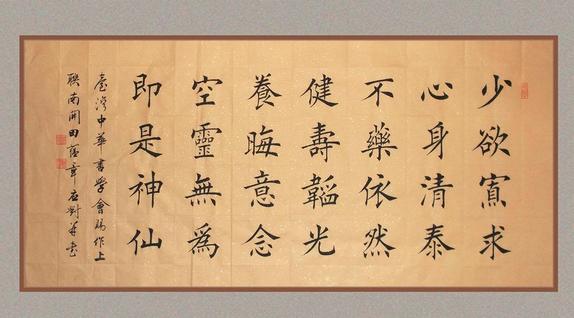 少欲寡求
心身清泰
不藥依然
健壽韜光
養晦意念
空靈無為
即是神仙
臺灣中華書學會賜作上
聯南開田蕴章应對并書